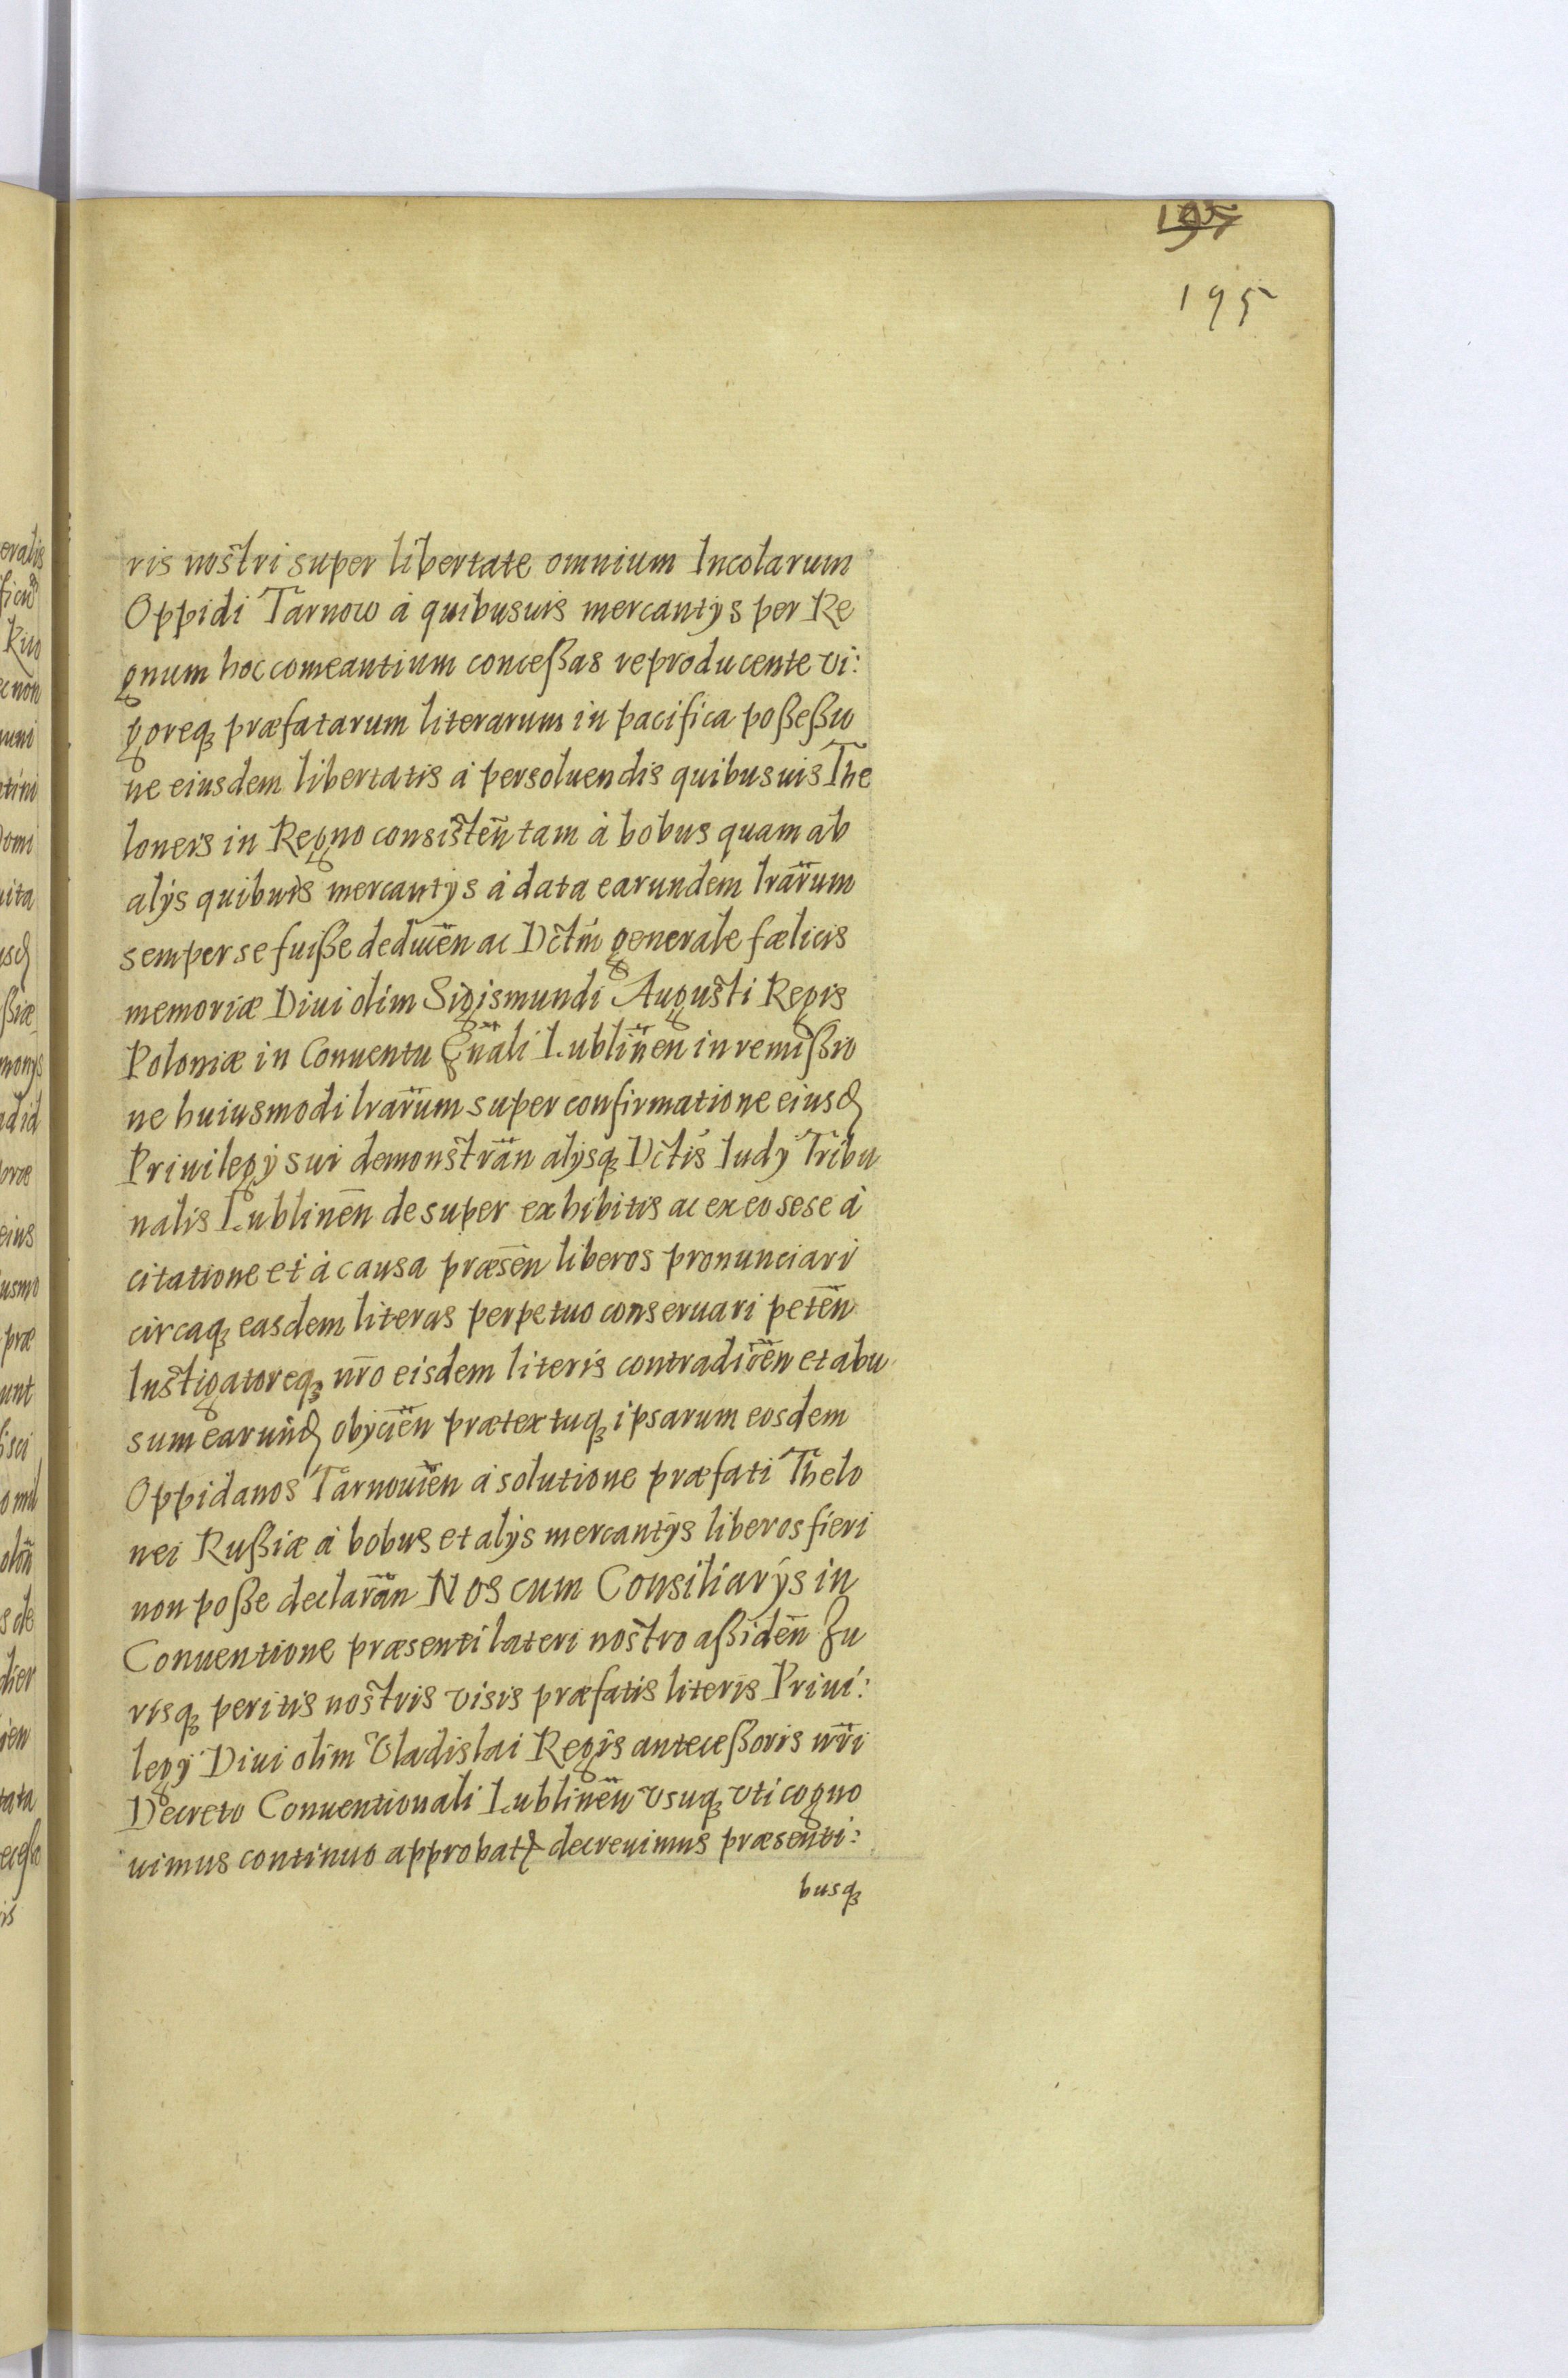 195
ris nostri super libertate omnium Incolarum
Oppidi Tarnow à quibusuis mercantÿs per Re
gnum hoc comeantium conceßas reproducente vi:
goreq₃ præfatarum literarum in pacifica poßeßio
ne eiusdem libertatis à persoluendis quibusuis The
loneis in Regno consisten̄ tam à bobus quam ab
alÿs quibuis mercantÿs à data earundem lrārum
semper se fuiße deducen̄ ac Dctm̄ generale fælicis
memoriæ Diui olim Sigismundi Augusti Regis
Poloniæ in Conuentu Gnāli Lublinen̄ in remißio
ne huiusmodi lrārum super confirmatione eiusd
Priuilegÿ sui demonstrān alÿsq₃ Dctīs Iudÿ Tribu
nalis Lublinen̄ desuper exhibitis ac ex eo sese à
citatione et à causa præsen̄ liberos pronunciari
circaq₃ easdem literas perpetuo conseruari peten̄
Instigatoreq₃ nr̄o eisdem literis contradicen̄ et abu
sum earund obÿcien̄ prætextuq₃ ipsarum eosdem
Oppidanos Tarnouien̄ à solutione præfati Thelo
nei Rußiæ à bobus et alÿs mercantÿs liberos fieri
non poße declarān Nos cum Consiliarÿs in
Conuentione præsenti lateri nostro aßiden̄ Iu
risq₃ peritis nostris visis præfatis literis Priui:
legÿ Diui olim Vladislai Regis anteceßoris nr̄i
Decreto Conuentionali Lublinen̄ vsuq₃ vti cogno
uimus continuo approbat decreuimus præsenti:
busq₃